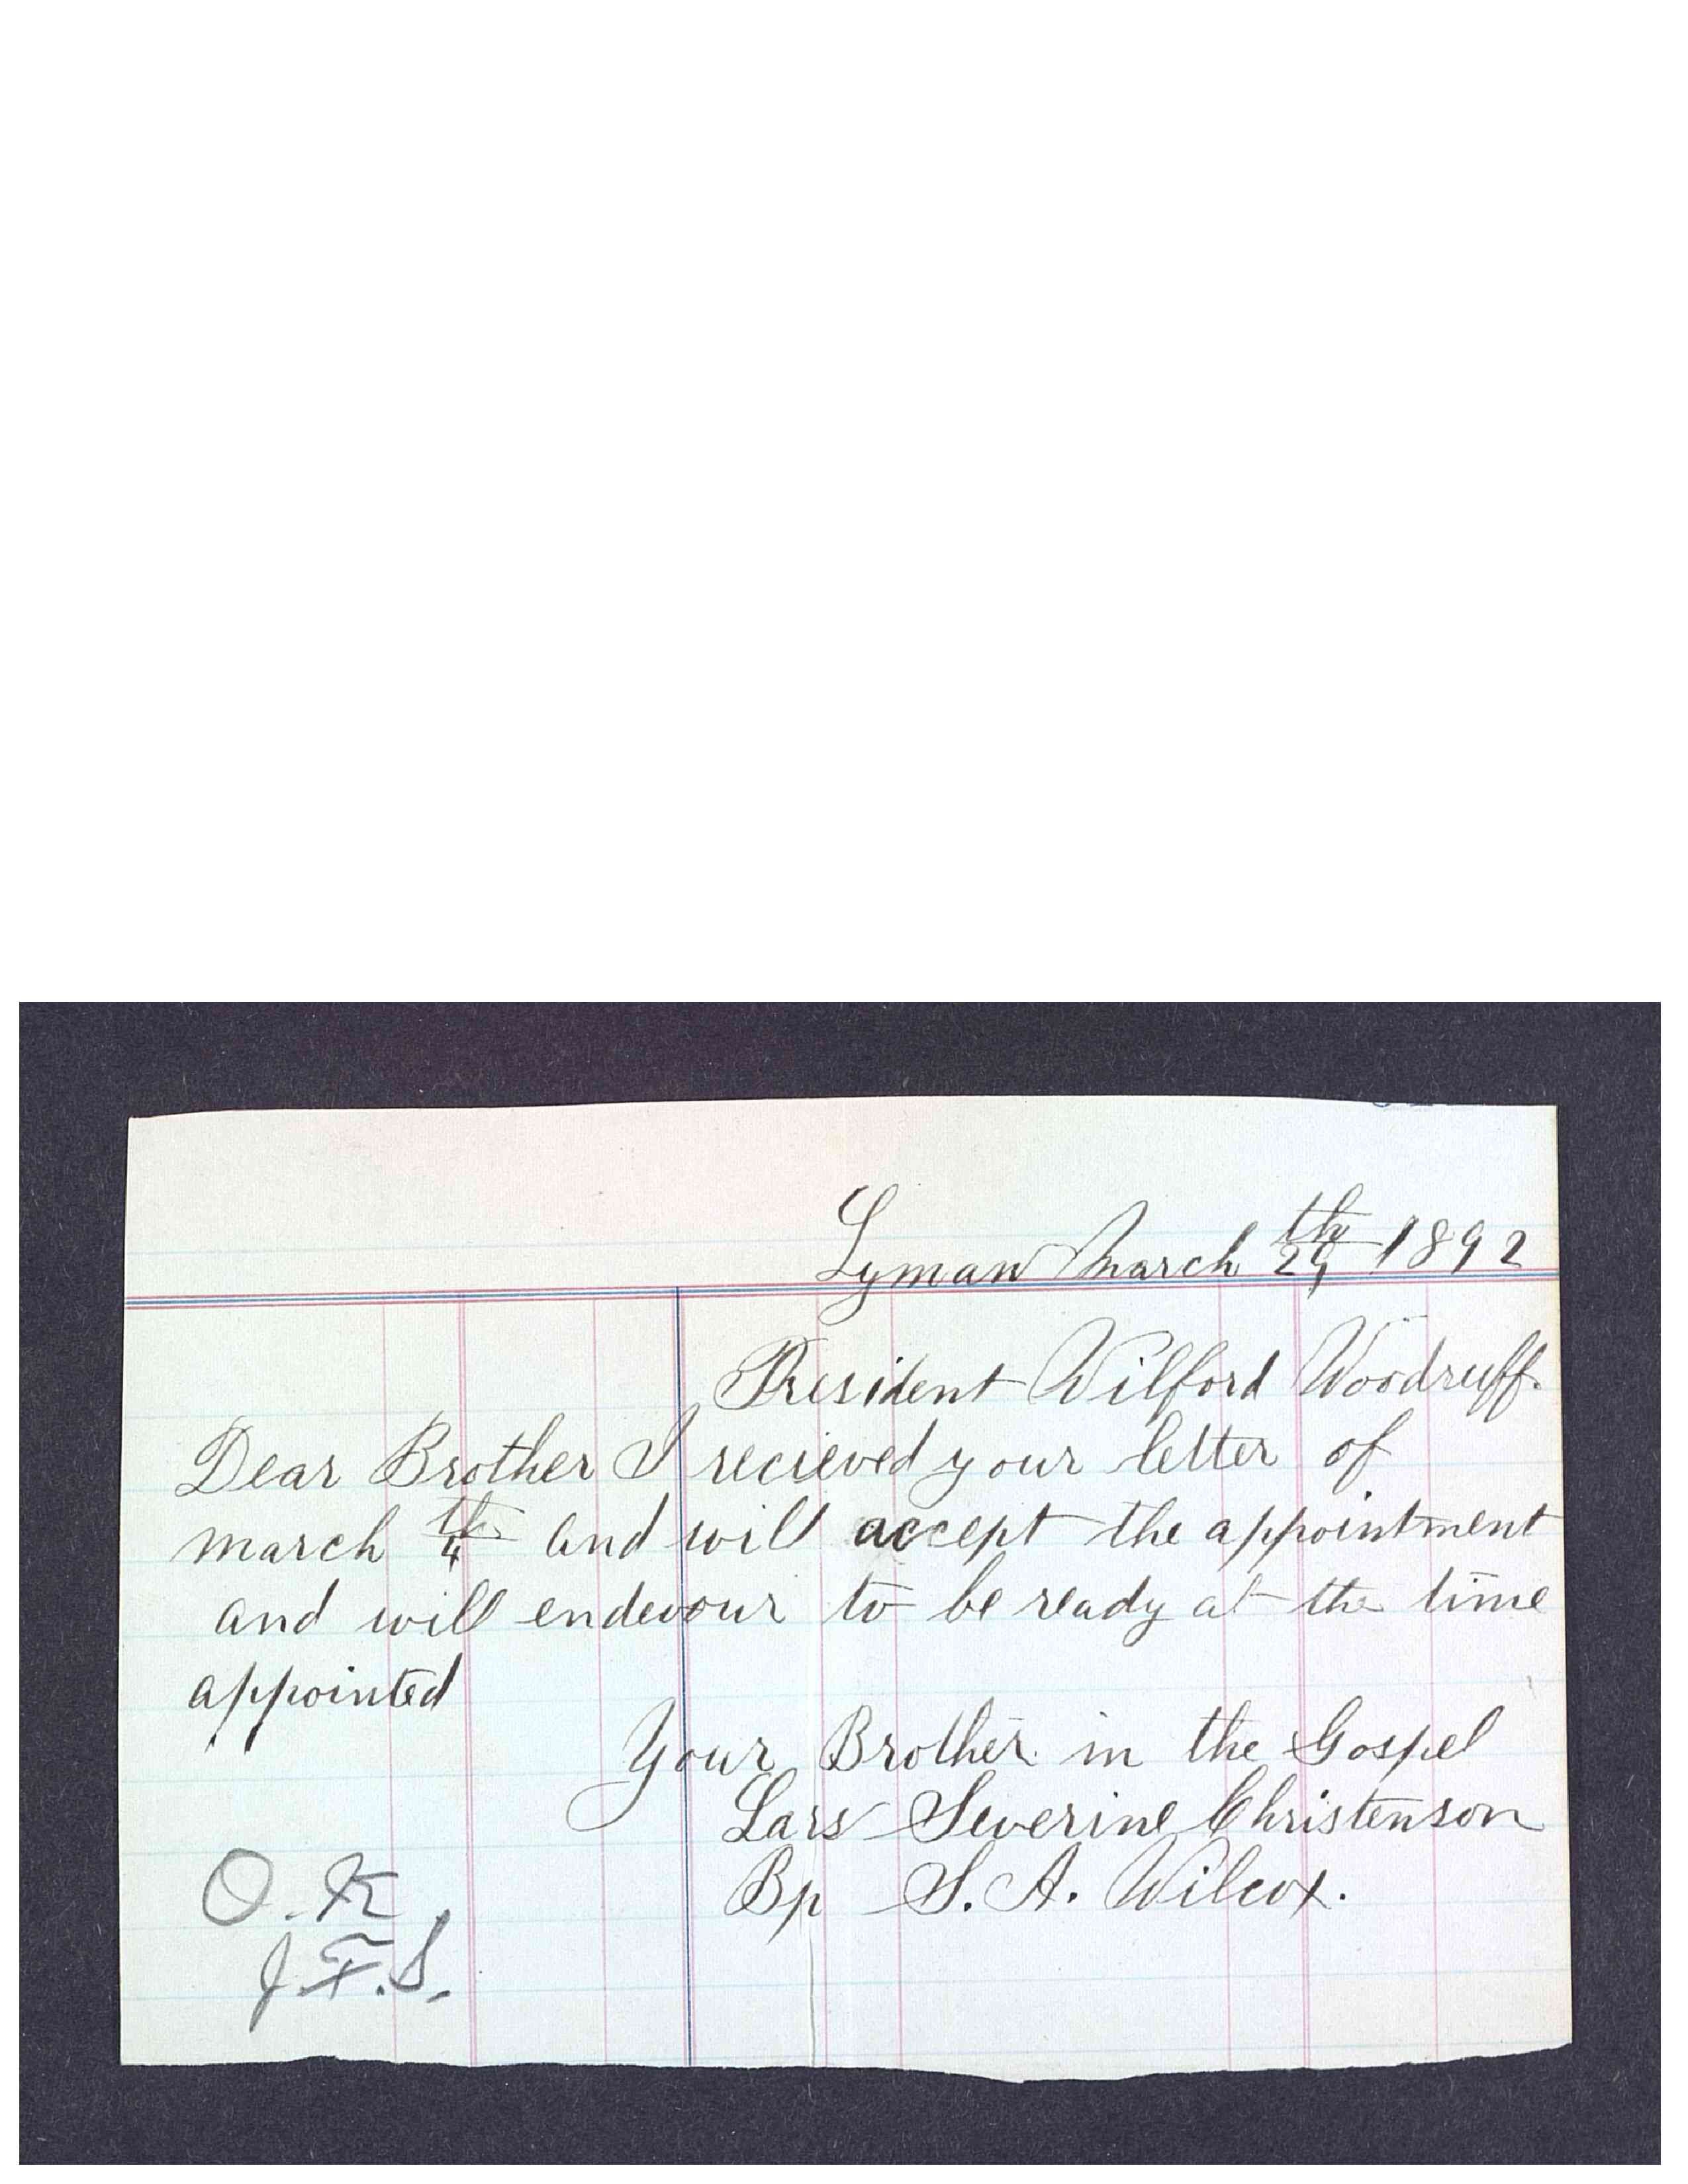 Lyman March 29th 1892
President Wilford Woodruff.
Dear Brother I recieved your letter of
march 4th and will accept the appointment
and will endevour to be ready at the time
appointed
Your Brother in the Gospel
Lars Severine Christenson
Bp S. A. Wilcox.
O.K
J.F.S.